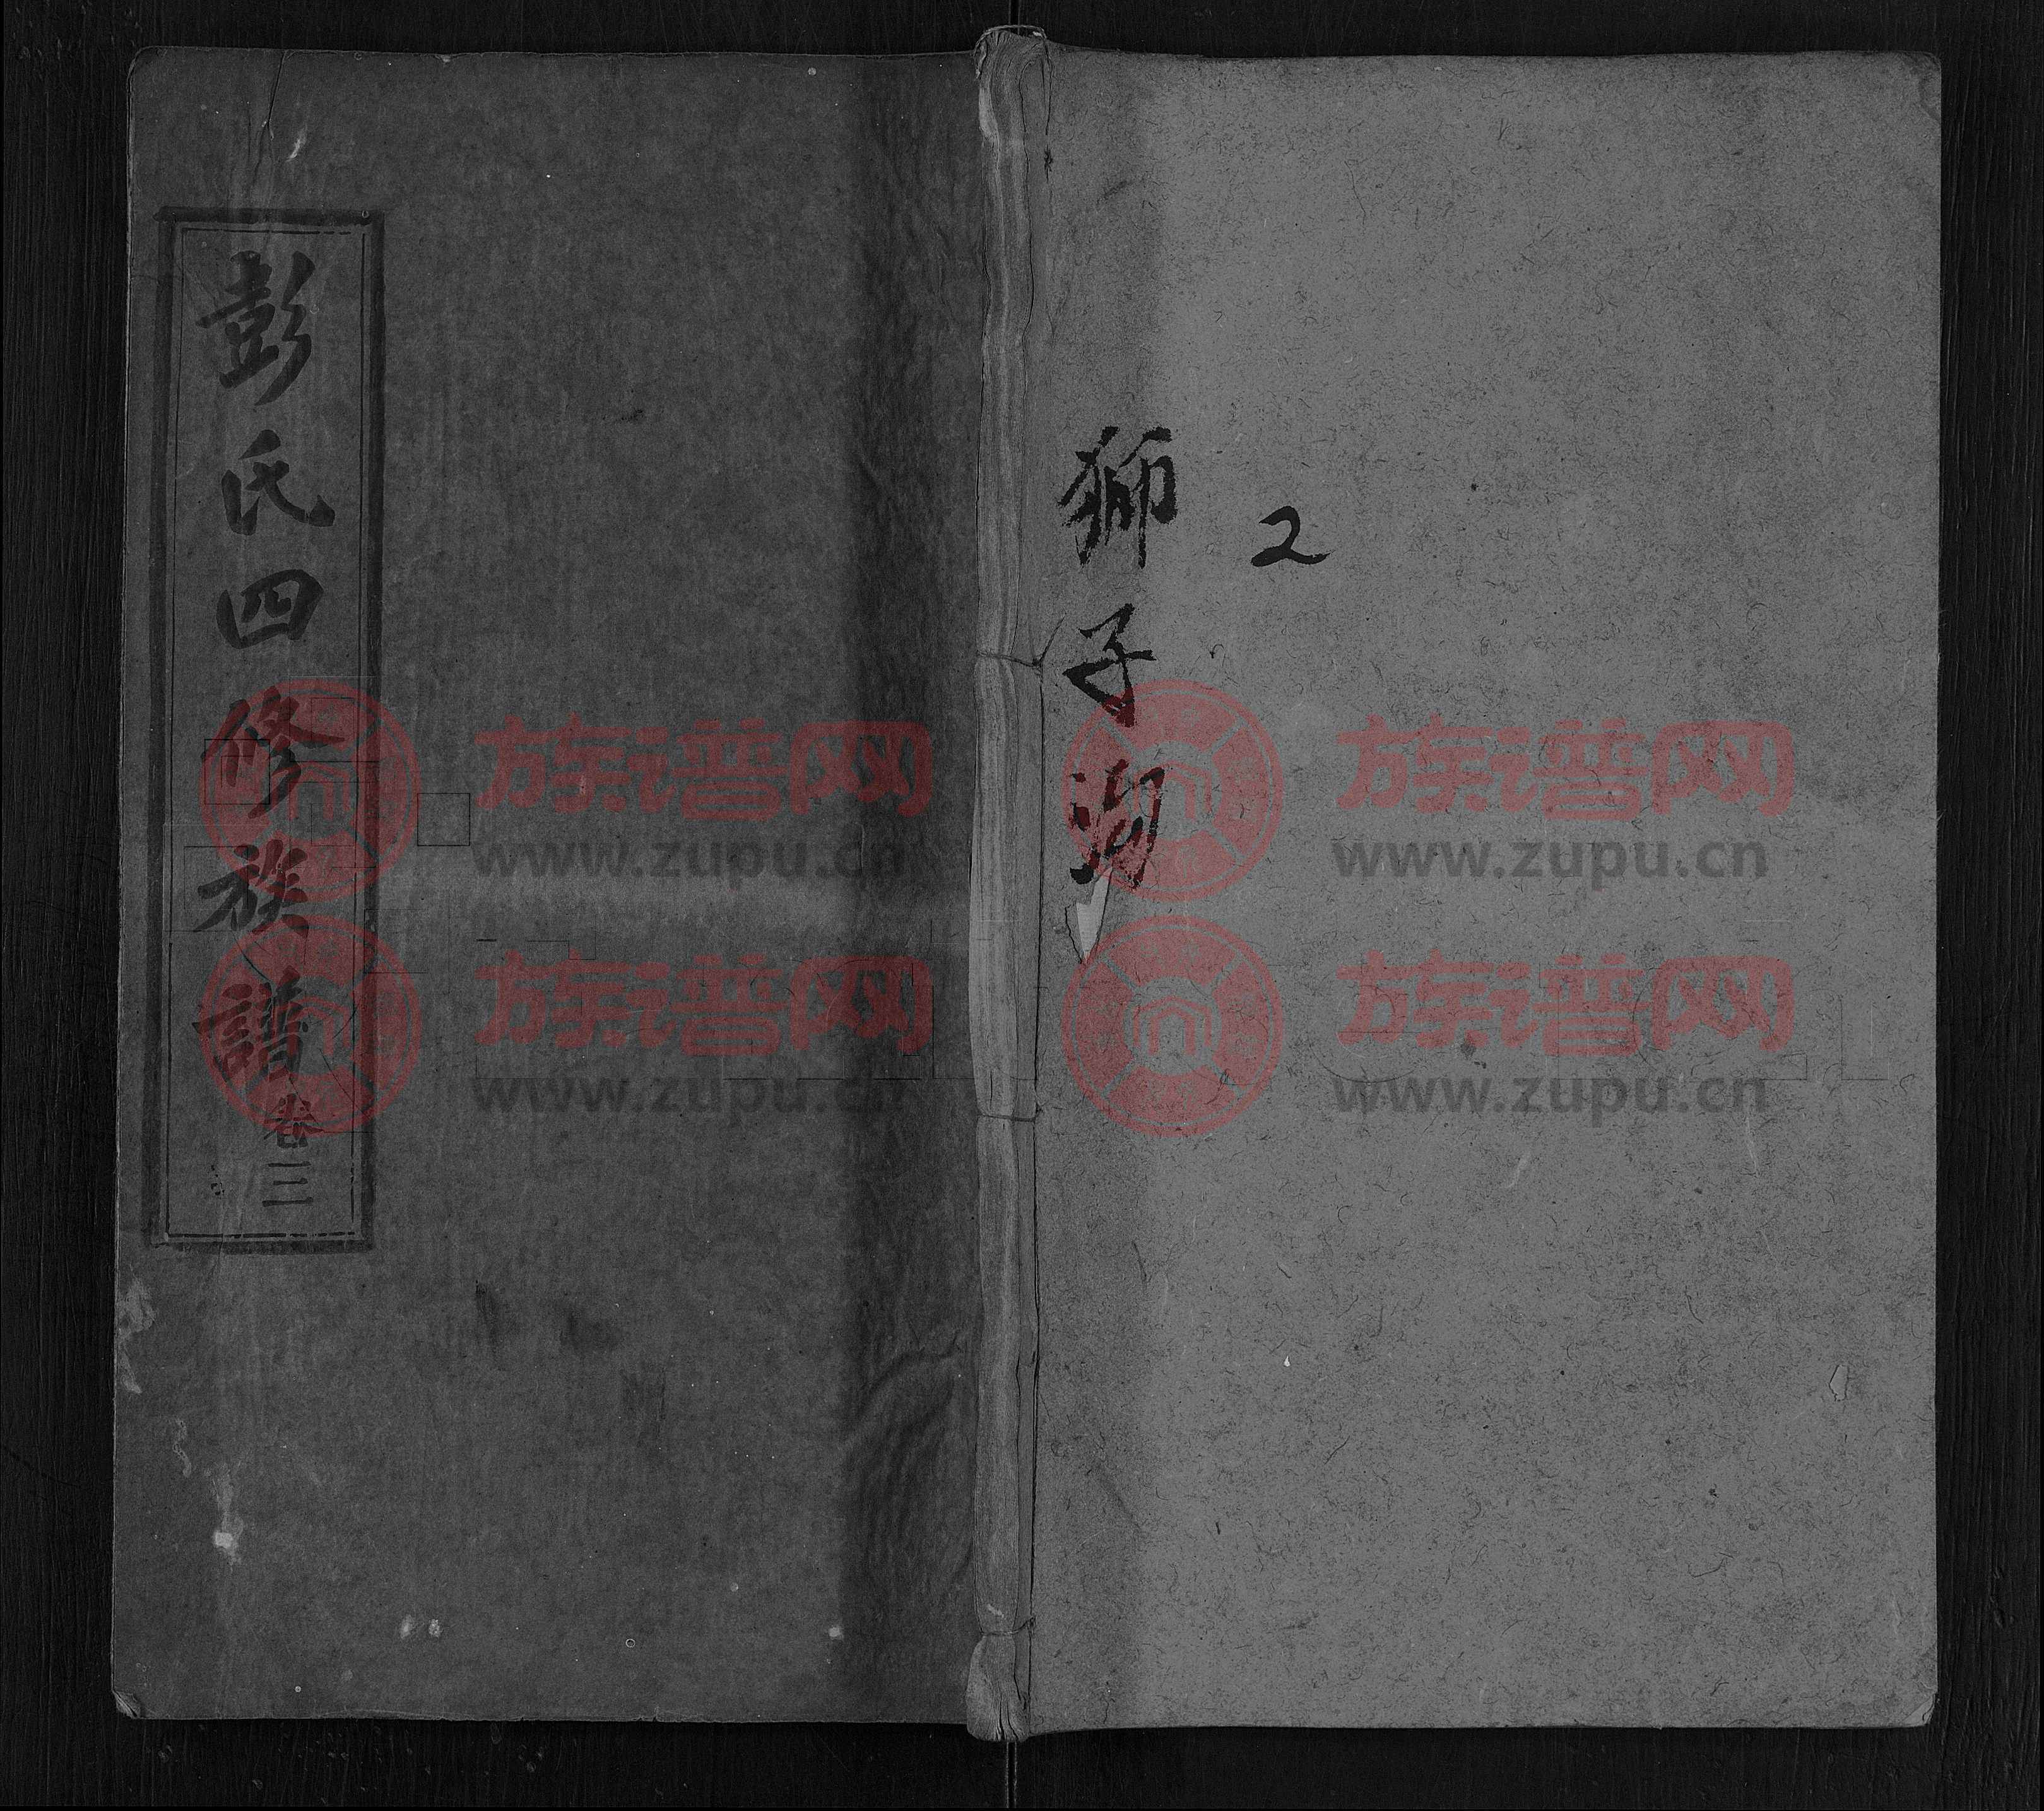 彭氏四修族譜卷三
獅子沕
2
族谱网
www.zupu.cn
族谱网
www.zupu.cn
族谱网
www.zupu.cn
族谱网
www.zupu.cn